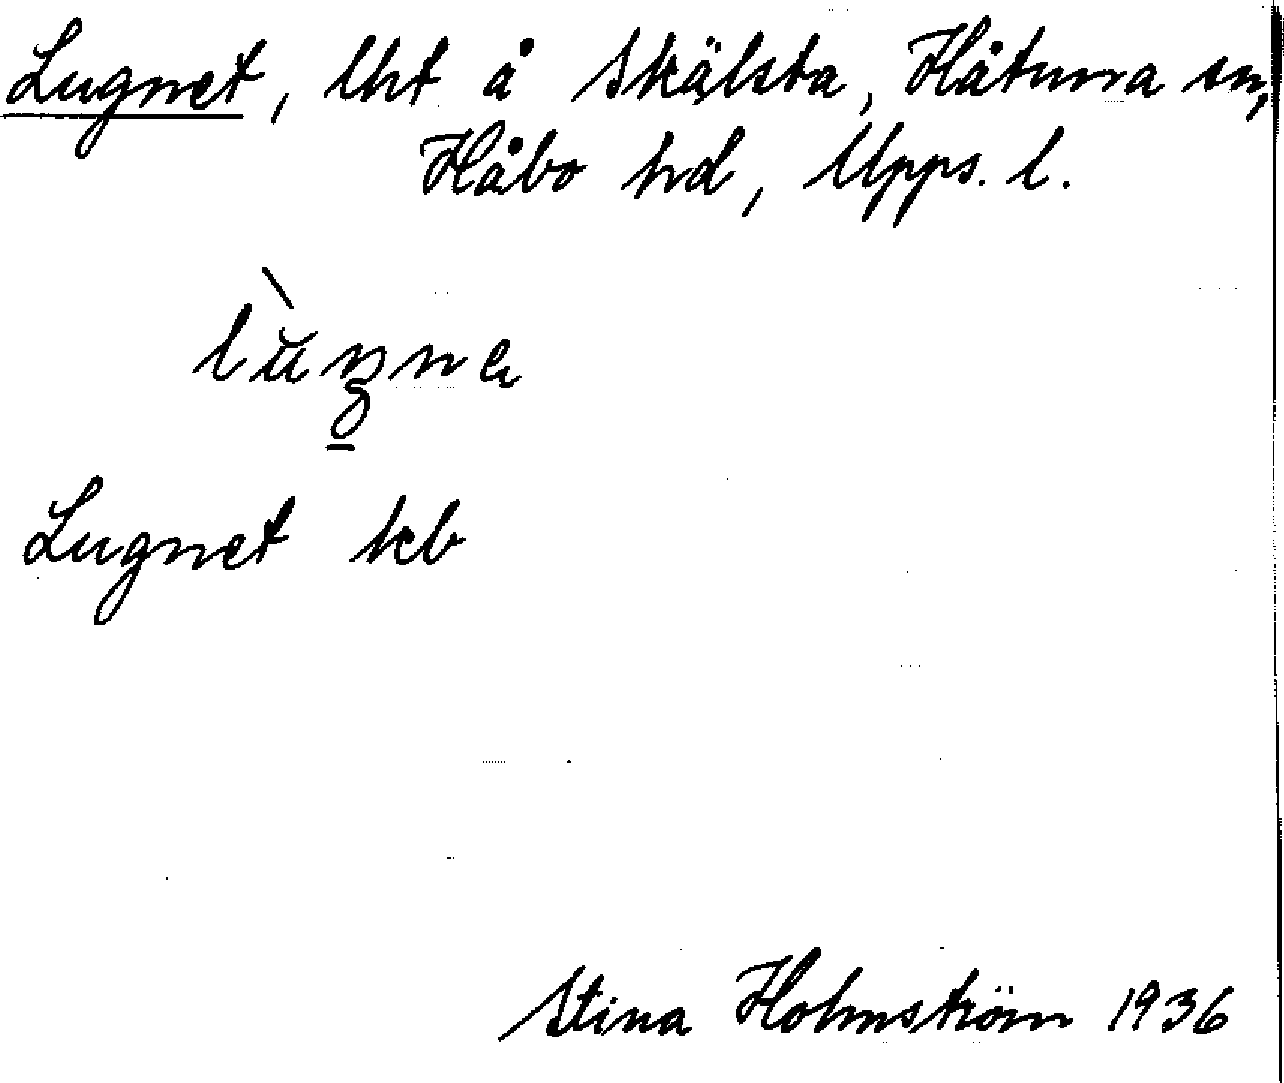 Lugnet, lht å Skälsta, Håtuna sn,
Håbo hd, Upps. l.
Lugnet kb
Stina Holmström 1936